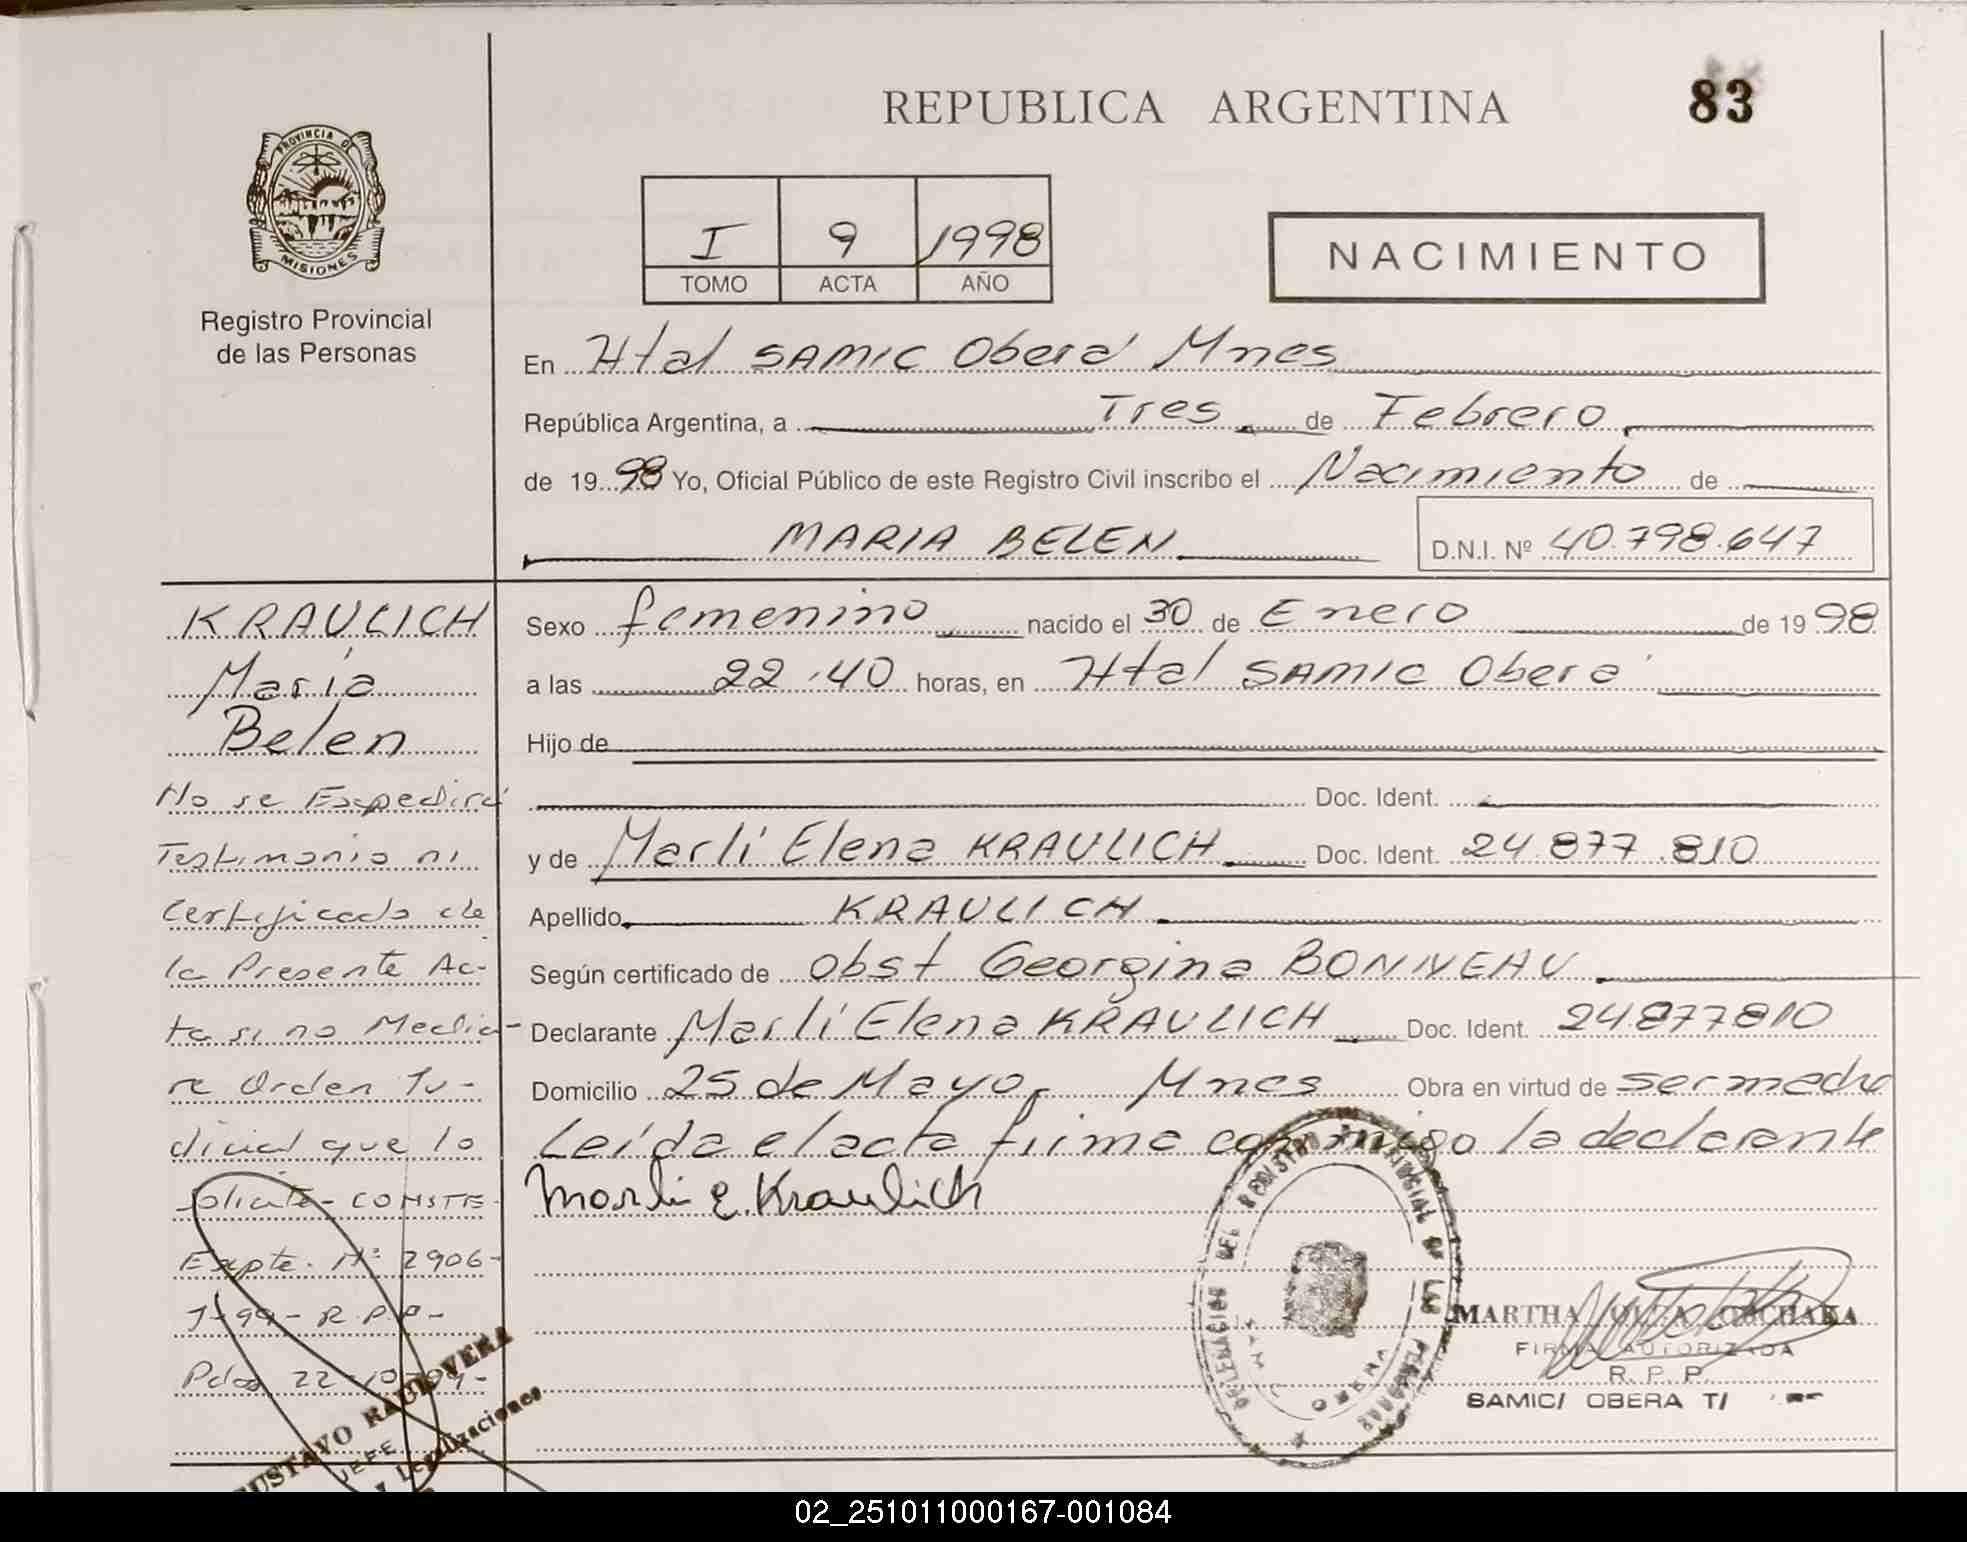 REPUBLICA ARGENTINA
83
PROVINCIA DE
MISIONES
Registro Provincial
de las Personas
I 9 1998
TOMO ACTA AÑO
NACIMIENTO
En Htal SAMIC Oberá Mnes
República Argentina, a Tres de Febrero
de 1998 Yo, Oficial Público de este Registro Civil inscribo el Nacimiento de
MARIA BELEN D.N.I. Nº 40.798.647
KRAULICH
María
Belen
No se Expedirá
Testimonio ni
Certificado de
la Presente Ac-
ta si no Media-
re Orden Ju-
dicial que lo
solicite - CONSTE-
Expte. Nº 2906-
J-99- R.P.P-
Pdas 22-10-
GUSTAVO
JEFE
Legalizaciones
Sexo femenino nacido el 30 de Enero de 1998
a las 22.40 horas, en Htal SAMIC Oberá
Hijo de
Doc. Ident.
y de Marli Elena KRAULICH Doc. Ident. 24.877.810
Apellido KRAULICH
Según certificado de Obst Georgina BONNEAU
Declarante Marli Elena KRAULICH Doc. Ident. 24877810
Domicilio 25 de Mayo, Mnes Obra en virtud de ser madre
Leída el acta firma conmigo la declarante
Marli E. Kraulich
DELEGACION DEL REGISTRO PROVINCIAL DE LAS PERSONAS
MARTHA
FIRMA AUTORIZADA
R. P. P.
SAMIC/ OBERA T/
02_251011000167-001084